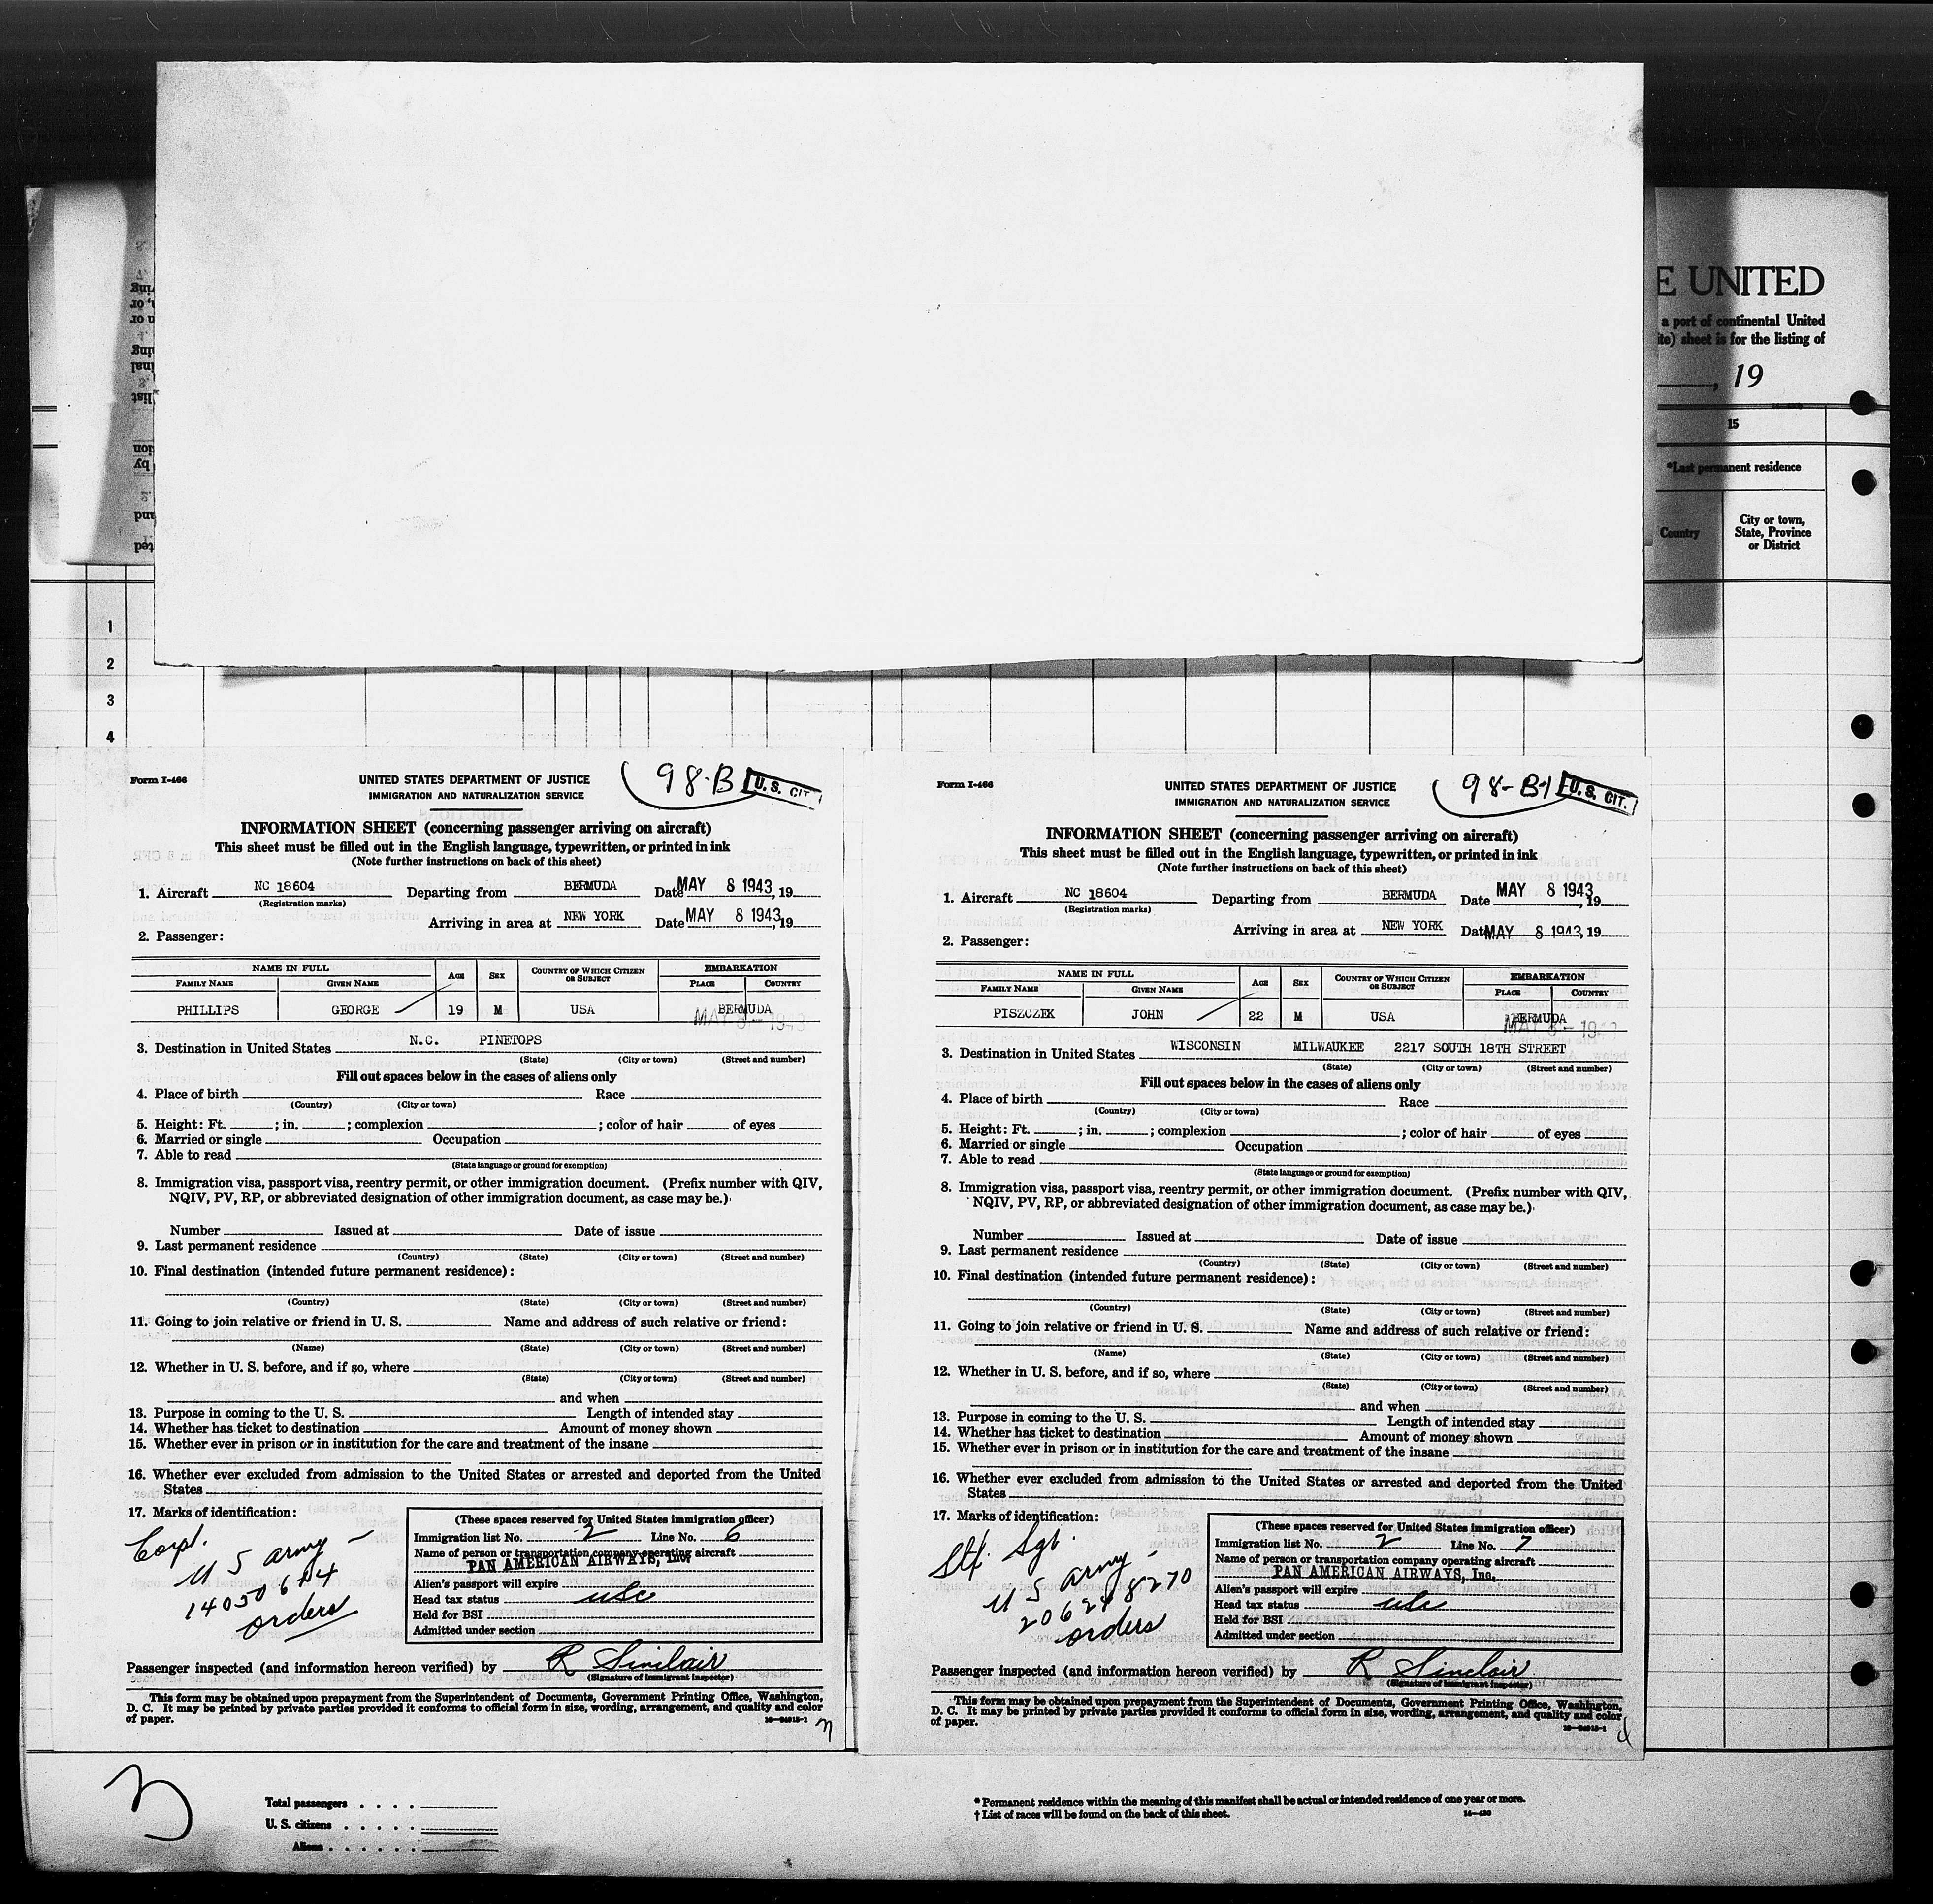 E UNITED
a port of continental United
sheet is for the listing of
, 19
15
*Last permanent residence
Country
City or town,
State, Province
or District
1
2
3
4
Form I-466
UNITED STATES DEPARTMENT OF JUSTICE
IMMIGRATION AND NATURALIZATION SERVICE
98-B
U.S. CIT.
INFORMATION SHEET (concerning passenger arriving on aircraft)
This sheet must be filled out in the English language, typewritten, or printed in ink
(Note further instructions on back of this sheet)
1. Aircraft NC 18604 Departing from BERMUDA Date MAY 8 1943, 19
(Registration marks)
Arriving in area at NEW YORK Date MAY 8 1943, 19
2. Passenger:
NAME IN FULL AGE SEX COUNTRY OF WHICH CITIZEN OR SUBJECT EMBARKATION
FAMILY NAME GIVEN NAME PLACE COUNTRY
PHILLIPS GEORGE 19 M USA BERMUDA
MAY 8 - 1943
3. Destination in United States N.C. PINETOPS
(State) (City or town) (Street and number)
Fill out spaces below in the cases of aliens only
4. Place of birth Race
(Country) (City or town)
5. Height: Ft. ; in. ; complexion ; color of hair of eyes
6. Married or single Occupation
7. Able to read
(State language or ground for exemption)
8. Immigration visa, passport visa, reentry permit, or other immigration document. (Prefix number with QIV,
NQIV, PV, RP, or abbreviated designation of other immigration document, as case may be.)
Number Issued at Date of issue
9. Last permanent residence
(Country) (State) (City or town) (Street and number)
10. Final destination (intended future permanent residence):
(Country) (State) (City or town) (Street and number)
11. Going to join relative or friend in U. S. Name and address of such relative or friend:
(Name) (State) (City or town) (Street and number)
12. Whether in U. S. before, and if so, where
(State) (City or town) (Street and number)
and when
13. Purpose in coming to the U. S. Length of intended stay
14. Whether has ticket to destination Amount of money shown
15. Whether ever in prison or in institution for the care and treatment of the insane
16. Whether ever excluded from admission to the United States or arrested and deported from the United
States
17. Marks of identification:
Corpl.
U S army -
orders
(These spaces reserved for United States immigration officer)
Immigration list No. 2 Line No. 6
Name of person or transportation company operating aircraft
PAN AMERICAN AIRWAYS, Inc.
Alien's passport will expire
Head tax status usc
Held for BSI
Admitted under section
Passenger inspected (and information hereon verified) by R Sinclair
(Signature of immigrant inspector)
This form may be obtained upon prepayment from the Superintendent of Documents, Government Printing Office, Washington,
D. C. It may be printed by private parties provided it conforms to official form in size, wording, arrangement, and quality and color
of paper.
Form I-466
UNITED STATES DEPARTMENT OF JUSTICE
IMMIGRATION AND NATURALIZATION SERVICE
98-B-1
U.S. CIT.
INFORMATION SHEET (concerning passenger arriving on aircraft)
This sheet must be filled out in the English language, typewritten, or printed in ink
(Note further instructions on back of this sheet)
1. Aircraft NC 18604 Departing from BERMUDA Date MAY 8 1943, 19
(Registration marks)
Arriving in area at NEW YORK Date MAY 8 1943, 19
2. Passenger:
NAME IN FULL AGE SEX COUNTRY OF WHICH CITIZEN OR SUBJECT EMBARKATION
FAMILY NAME GIVEN NAME PLACE COUNTRY
PISZCZEK JOHN 22 M USA BERMUDA
3. Destination in United States WISCONSIN MILWAUKEE 2217 SOUTH 18TH STREET
(State) (City or town) (Street and number)
Fill out spaces below in the cases of aliens only
4. Place of birth Race
(Country) (City or town)
5. Height: Ft. ; in. ; complexion ; color of hair of eyes
6. Married or single Occupation
7. Able to read
(State language or ground for exemption)
8. Immigration visa, passport visa, reentry permit, or other immigration document. (Prefix number with QIV,
NQIV, PV, RP, or abbreviated designation of other immigration document, as case may be.)
Number Issued at Date of issue
9. Last permanent residence
(Country) (State) (City or town) (Street and number)
10. Final destination (intended future permanent residence):
(Country) (State) (City or town) (Street and number)
11. Going to join relative or friend in U. S. Name and address of such relative or friend:
(Name) (State) (City or town) (Street and number)
12. Whether in U. S. before, and if so, where
(State) (City or town) (Street and number)
and when
13. Purpose in coming to the U. S. Length of intended stay
14. Whether has ticket to destination Amount of money shown
15. Whether ever in prison or in institution for the care and treatment of the insane
16. Whether ever excluded from admission to the United States or arrested and deported from the United
States
17. Marks of identification:
Stf. Sgt.
U S army -
206248270
orders
(These spaces reserved for United States immigration officer)
Immigration list No. 2 Line No. 7
Name of person or transportation company operating aircraft
PAN AMERICAN AIRWAYS, Inc.
Alien's passport will expire
Head tax status usc
Held for BSI
Admitted under section
Passenger inspected (and information hereon verified) by R Sinclair
(Signature of immigrant inspector)
This form may be obtained upon prepayment from the Superintendent of Documents, Government Printing Office, Washington,
D. C. It may be printed by private parties provided it conforms to official form in size, wording, arrangement, and quality and color
of paper.
3
Total passengers
U. S. citizens
Aliens
* Permanent residence within the meaning of this manifest shall be actual or intended residence of one year or more.
† List of races will be found on the back of this sheet.